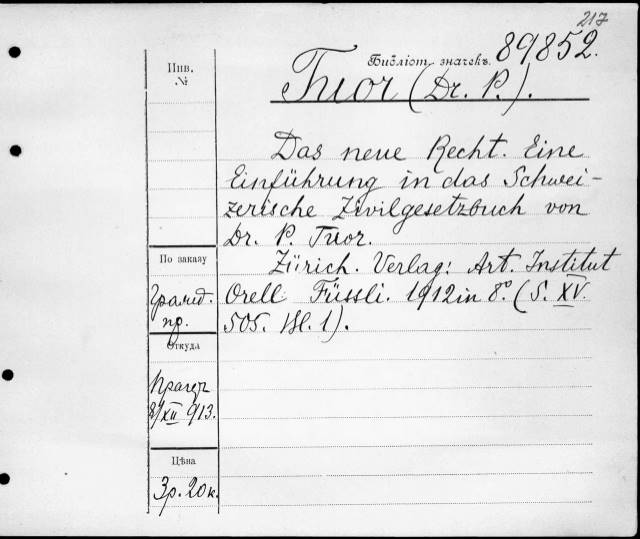 217
Библіот. значекъ 89852.
Tuor (Dr. P.).
Инв.
№
Das neue Recht. Eine
Einführung in das Schwei-
zerische Zivilgesetzbuch von
Dr. P. Tuor.
Zürich. Verlag: Art. Institut
Orell Füssli. 1912 in 8° (S. XV.
505. Bl. 1).
По заказу
Гражд.
пр.
Откуда
8/XII 913.
Цѣна
3р. 20к.